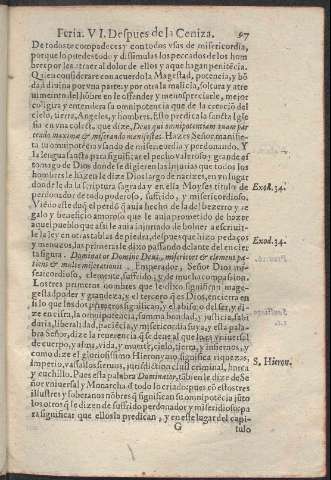 Feria. VI. Despues de la Ceniza. 97
De todos te compadeces, y con todos vsas de misericordia,
porque lo puedes todo, y dissimulas los peccados de los hom
bres por les atraer al dolor de ellos y a que hagan penitẽcia.
Quien considerare con acuerdo la Magestad, potencia, y bõ
dad diuina por vna parte: y por otra la malicia, soltura y atre
uimiento del hõbre en le offender y menospreciarle, mejor
coligira y entendera su omnipotencia que de la creaciõ del
cielo, tierra, Angeles, y hombres. Esto predica la sancta Igle
sia en vna colecta, que dize, Deus qui omnipotentiam tuam par
cendo maxime & miserando manifestas. Hazes Señor manifies-
ta tu omnipotencia vsando de misericordia y perdonando. Y
la lengua sancta para significar el pecho valeroso y grande es
tomago de Dios donde se digieren las injurias que todos los
hombres le hazen le dize Dios largo de narizes, en vn lugar
donde le da la Scriptura sagrada y en ella Moyses titulos de
perdonador de todo poderoso, suffrido, y misericordioso.
Exod. 34.
Vio en este que el perdõ que auia hecho de la del bezerro y re
galo y beneficio amoroso que le auia prometido de hazer
aquel pueblo que assi le auia injuriado de boluer a escreuir-
le la ley en otras tablas de piedra, despues que hizo pedaços
y menuzos, las primeras le dixo passando delante del encier
Exod. 34.
ta figura. Dominator Domine Deus, misericors & clemens pa-
tiens & multæ miserationis. Emperador, Señor Dios mi-
sericordioso, clemente, suffrido, y de mucha compassion.
Los tres primeros nombres que le dixo significan mage-
gestad poder y grandeza, y el tercero q̃ es Dios, encierra en
si lo que los dos primeros significan, y el abismo del ser, y di-
ze en cifra, la omnipotencia, summa bondad, y justicia, sabi
duria, liberalidad, paciẽcia, y misericordia suya, y esta pala-
bra Señor, dize la reuerencia q̃ se deue al que haze vniuersal
de cuerpo, y alma, vida, y muerte, cielo, tierra, y infiernos, y
como dize el gloriosissimo Hieronymo significa riquezas,
S. Hieron.
Imperio, vasallos, seruos, jurisdiction ciuil criminal, horca
y cuchillo. Pues esta palabra Dominator, tãbien le dize de Se
ñor vniuersal y Monarcha d' todo lo criado: pues cõ estos tres
illustres y soberanos nõbres q̃ significan su omnipotẽcia jũto
los otros q̃ le dizen de suffrido perdonador y misericordioso: pa
ra significar que ellos la predican, y en este lugar del capi-
G tulo